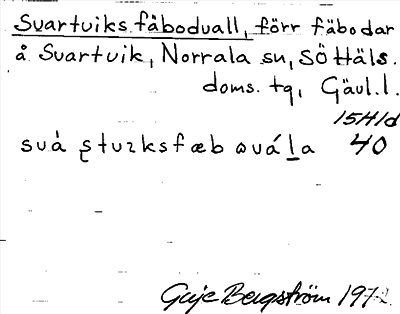 Svartviks fäbodvall, förr fäbodar
å Svartvik, Norrala sn, SÖ Häls.
doms. tg, Gävl.l.
15H1d
svȧ ʂtvɩksfæb ɷváḷa 40
Gaje Bergström 1972